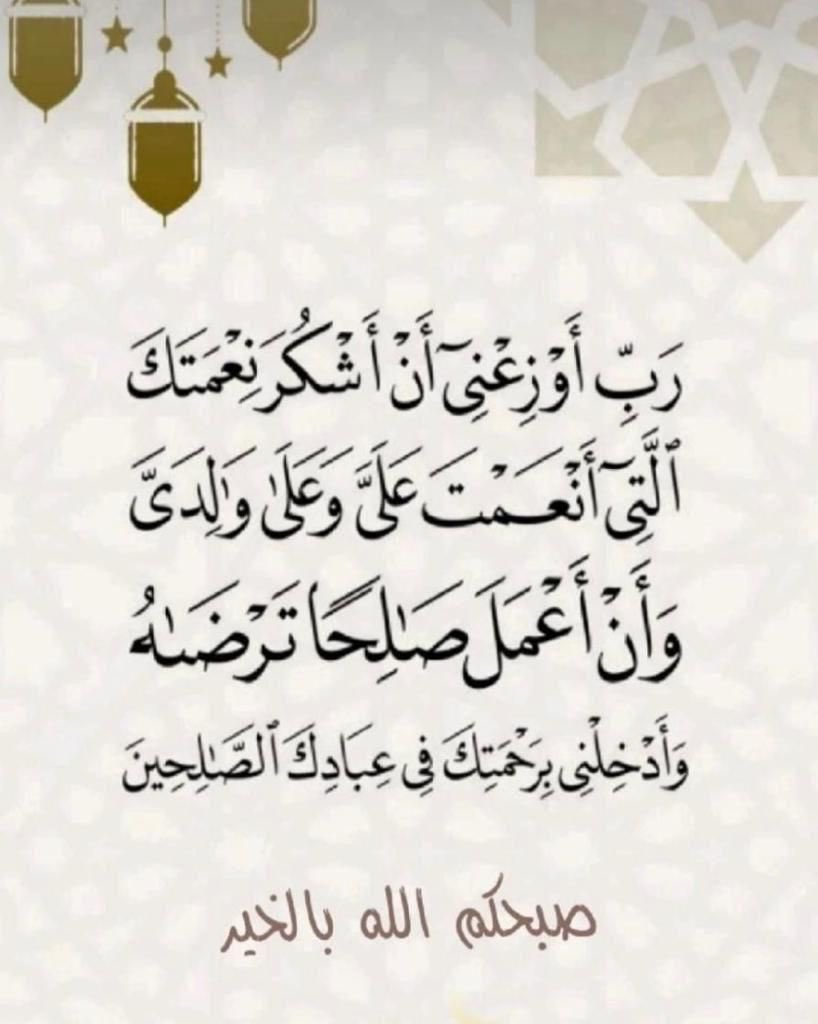 رَبِّ أَوْزِعْنِىٓ أَنْ أَشْكُرَ نِعْمَتَكَ
ٱلَّتِىٓ أَنْعَمْتَ عَلَىَّ وَعَلَىٰ وَٰلِدَىَّ
وَأَنْ أَعْمَلَ صَـٰلِحًا تَرْضَىٰهُ
وَأَدْخِلْنِى بِرَحْمَتِكَ فِى عِبَادِكَ ٱلصَّـٰلِحِينَ
صبحكم الله بالخير